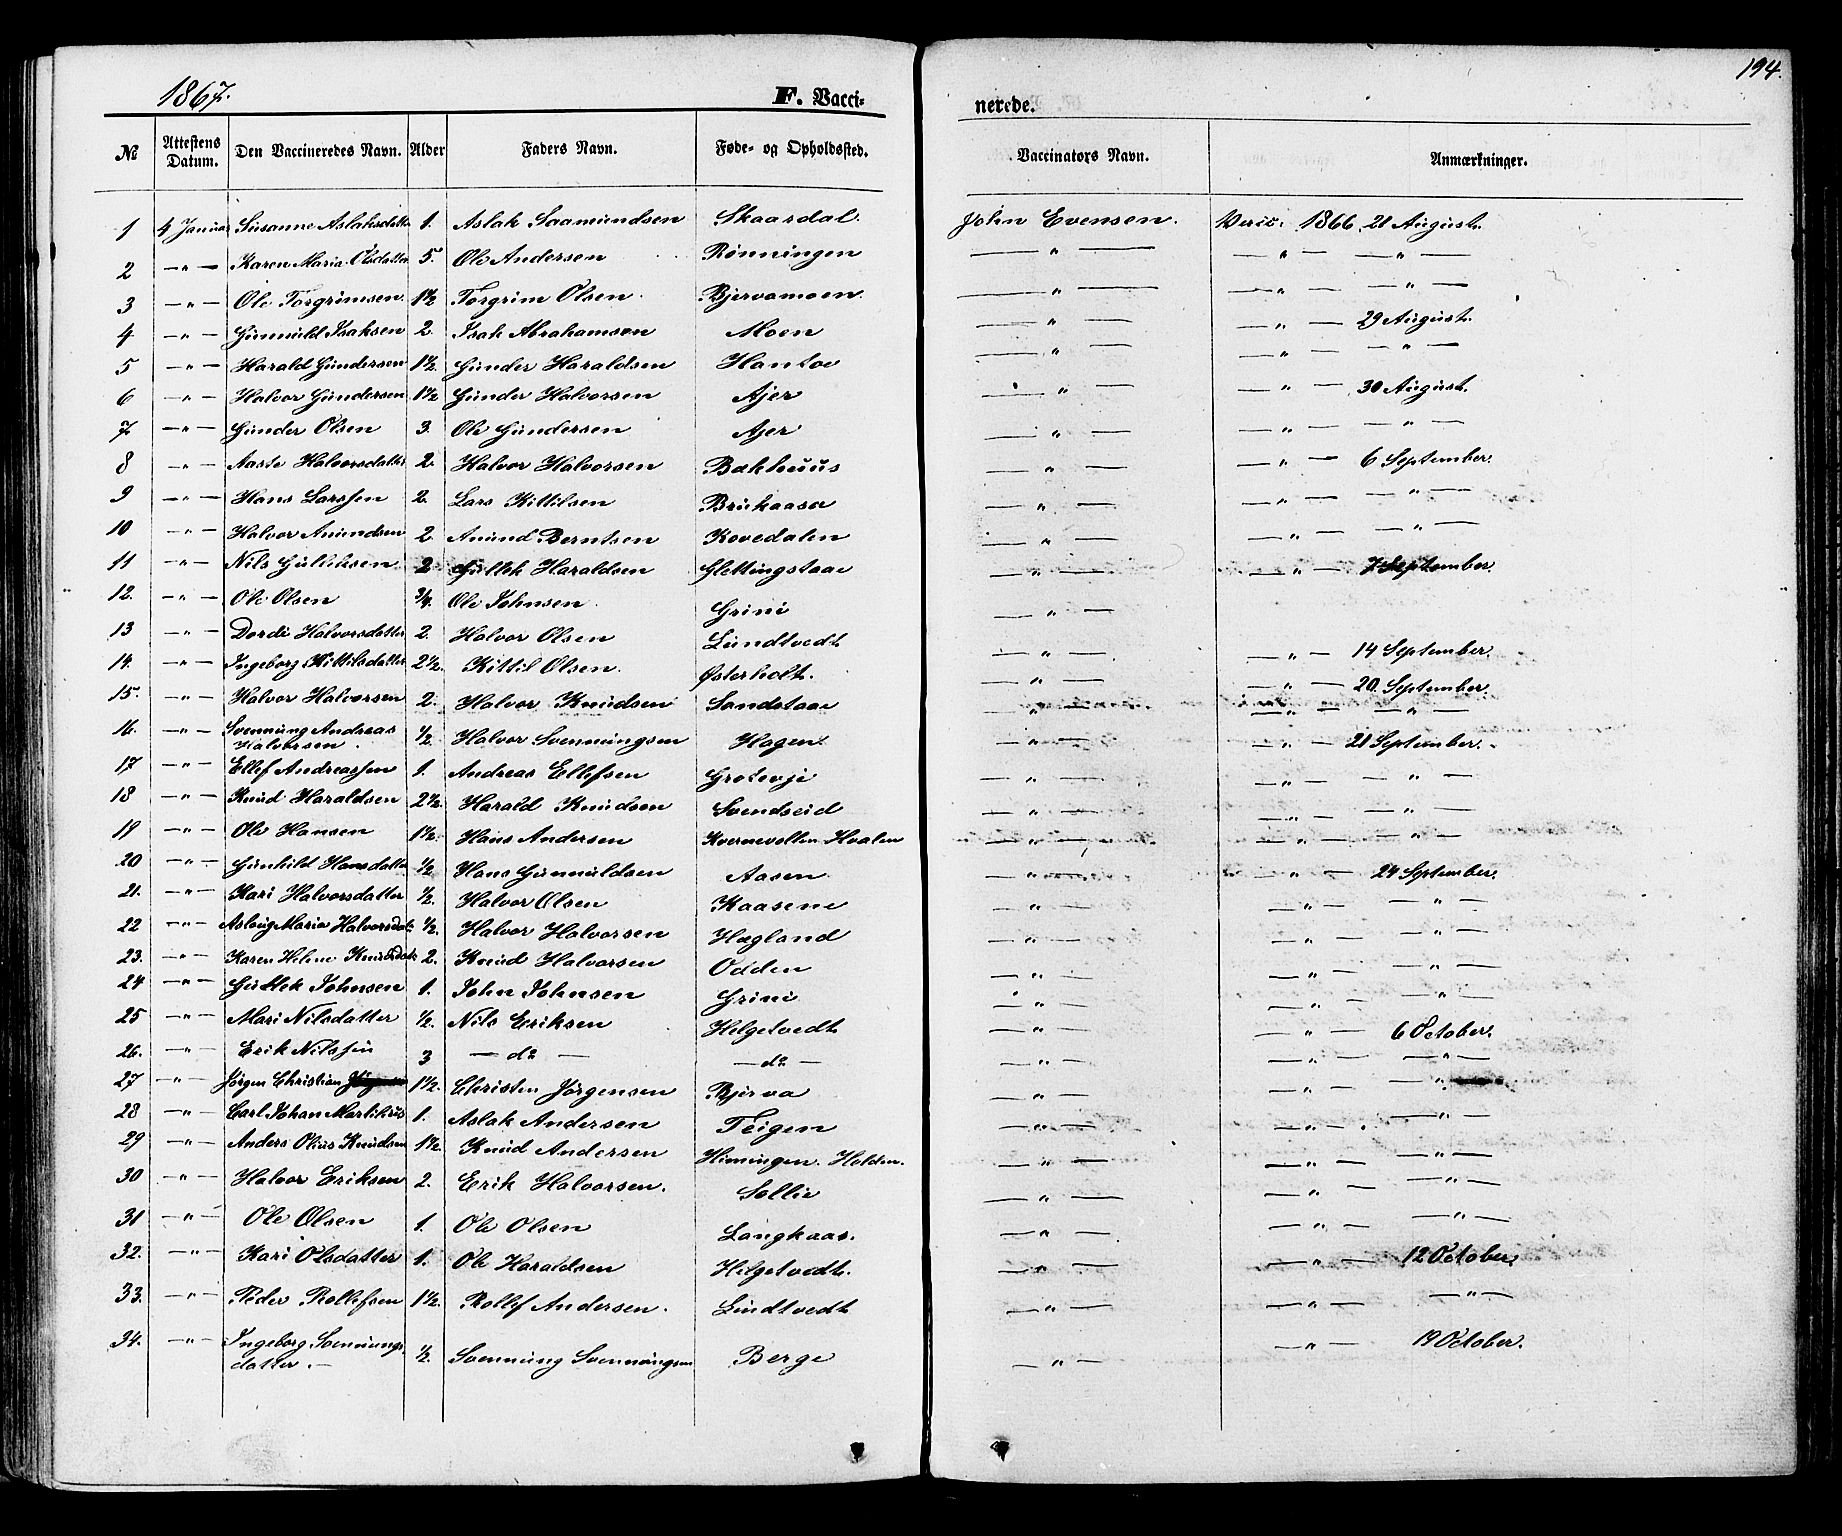 194.
1867. F. Vacci- nerede.
№ Attestens Datum. Den Vaccineredes Navn. Alder Faders Navn. Føde- og Opholdssted. Vaccinators Navn. Anmærkninger.
1 4 Januar Susanne Aslaksdatter 1. Aslak Saamundsen Skaardal. John Evensen. 1866. 21 August.
2 — " — Karen Maria Olsdatter 5. Ole Andersen Rönningen — " — — " — — " —
3 — " — Ole Torgrimsen 1 1/2 Torgrim Olsen. Bjervamoen. — " — — " — — " —
4 — " — Gunnuld Isaksen 2. Isak Abrahamsen Moen — " — — " — 29 August.
5 — " — Harald Gundersen 1 1/2. Gunder Haraldsen Hantoe — " — — " — — " —
6 — " — Halvor Gundersen 1 1/2 Gunder Halvorsen Ajer — " — — " — 30 August.
7 — " — Gunder Olsen 3. Ole Gundersen Ajer — " — — " — — " —
8 — " — Aaste Halvorsdatter 2. Halvor Halvorsen Bakhuus — " — — " — 6 September.
9 — " — Hans Larssen 2. Lars Kittilsen Brukaasa — " — — " — — " —
10 — " — Halvor Anundsen 2. Anund Berntsen Kovedalen — " — — " — — " —
11 — " — Nils Gulliksen 2 Gullek Haraldsen Glettingstaae — " — — " — 7 September.
12. — " — Ole Olsen 3/4. Ole Johnsen. Grini — " —
13 — " — Dordi Halvorsdatter 2. Halvor Olsen Lundtvedt — " — — " — 14 September.
14. — " — Ingeborg Kittilsdatter 2 1/2. Kittil Olsen. Østerholt. — " — — " — 20. September.
15. — " — Halvor Halvorsen 2. Halvor Knudsen Sandstaae — " — — " — — " —
16. — " — Svennung Andreas
Halvorsen. 1/2 Halvor Svennungsen Hagen. — " — — " — 21 September.
17 — " — Ellef Andreassen 1. Andreas Ellefsen Grotevje — " — — " — — " —
18 — " — Knud Haraldsen 2 1/2. Harald Knudsen Svendseid — " — — " — — " —
19 — " — Ole Hansen 1 1/2. Hans Andersen Kvernevolten Hvalen — " — — " — — " —
20 — " — Gunhild Hansdatter 1/2 Hans Gunnuldsen Aasen — " — — " — 24 September.
21. — " — Kari Halvorsdatter 1/2. Halvor Olsen Kaasene — " — — " — — " —
22 — " — Aslaug Maria Halvorsdat: 1/2. Halvor Halvorsen Hægland — " — — " — — " —
23. — " — Karen Helene Knudsdatr 2. Knud Halvorsen Odden — " — — " — — " —
24 — " — Gullek Johnsen 1. John Johnsen Grini — " — — " — — " —
25 — " — Mari Nilsdatter 1/2. Nils Eriksen Helgetvedt — " — — " — 6 October.
26. — " — Erik Nilssen 3 — do — — do — — " — — " — — " —
27 — " — Jörgen Christian 1 1/2. Christen Jörgensen Bjerva — " — — " — — " —
28 — " — Carl Johan Martinius 1. Aslak Andersen Teigen — " — — " — — " —
29 — " — Anders Olius Knudsen 1 1/2. Knud Andersen Himingen. Holden. — " — — " — — " —
30 — " — Halvor Eriksen 2. Erik Halvorsen. Sollie — " — — " — — " —
31 — " — Ole Olsen 1. Ole Olsen Langkaas. — " — — " — — " —
32. — " — Kari Olsdatter 1. Ole Haraldsen Helgetvedt. — " — — " — 12 October.
33. — " — Peder Rollefsen 1 1/2. Rollef Andersen. Lindtvedt — " — — " — — " —
34. — " — Ingeborg Svennungs-
datter. — 1/2. Svennung Svennungsen Berge — " — — " — 19 October.